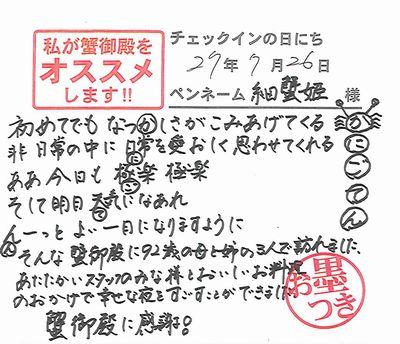 私が蟹御殿を
オススメ
します!!
チェックインの日にち
27年7月26日
ペンネーム 細蟹姫 様
初めてでも なつかしさがこみあげてくる
非日常の中に 日常を愛おしく思わせてくれる
ああ 今日も 極楽 極楽
そして明日 天気になあれ
んーっと よい一日になりますように
かにごてん
そんな 蟹御殿に92歳の母と姉の3人で訪れました、
あたたかいスタッフのみな様とおいしいお料理
のおかげで幸せな夜をすごすことができました
蟹御殿に感謝!
お墨つき